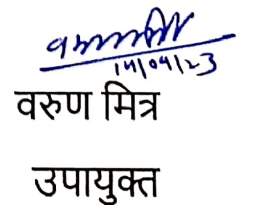 14/04/23
वरुण मित्र
उपायुक्त